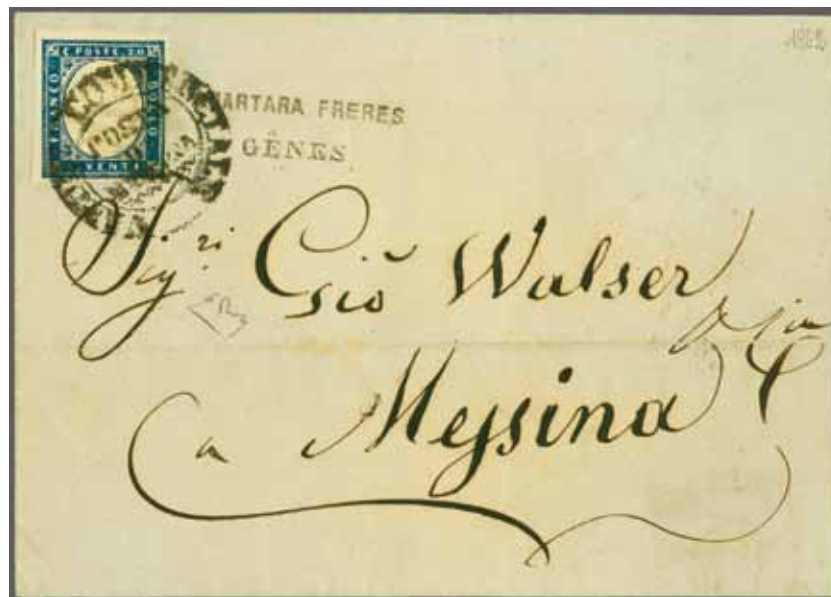 C. POSTE. 20
FRANCO
BOLLO
VENTI
1862
MARTARA FRERES
GÊNES
Sig.ri Giõ Walser
a Messina